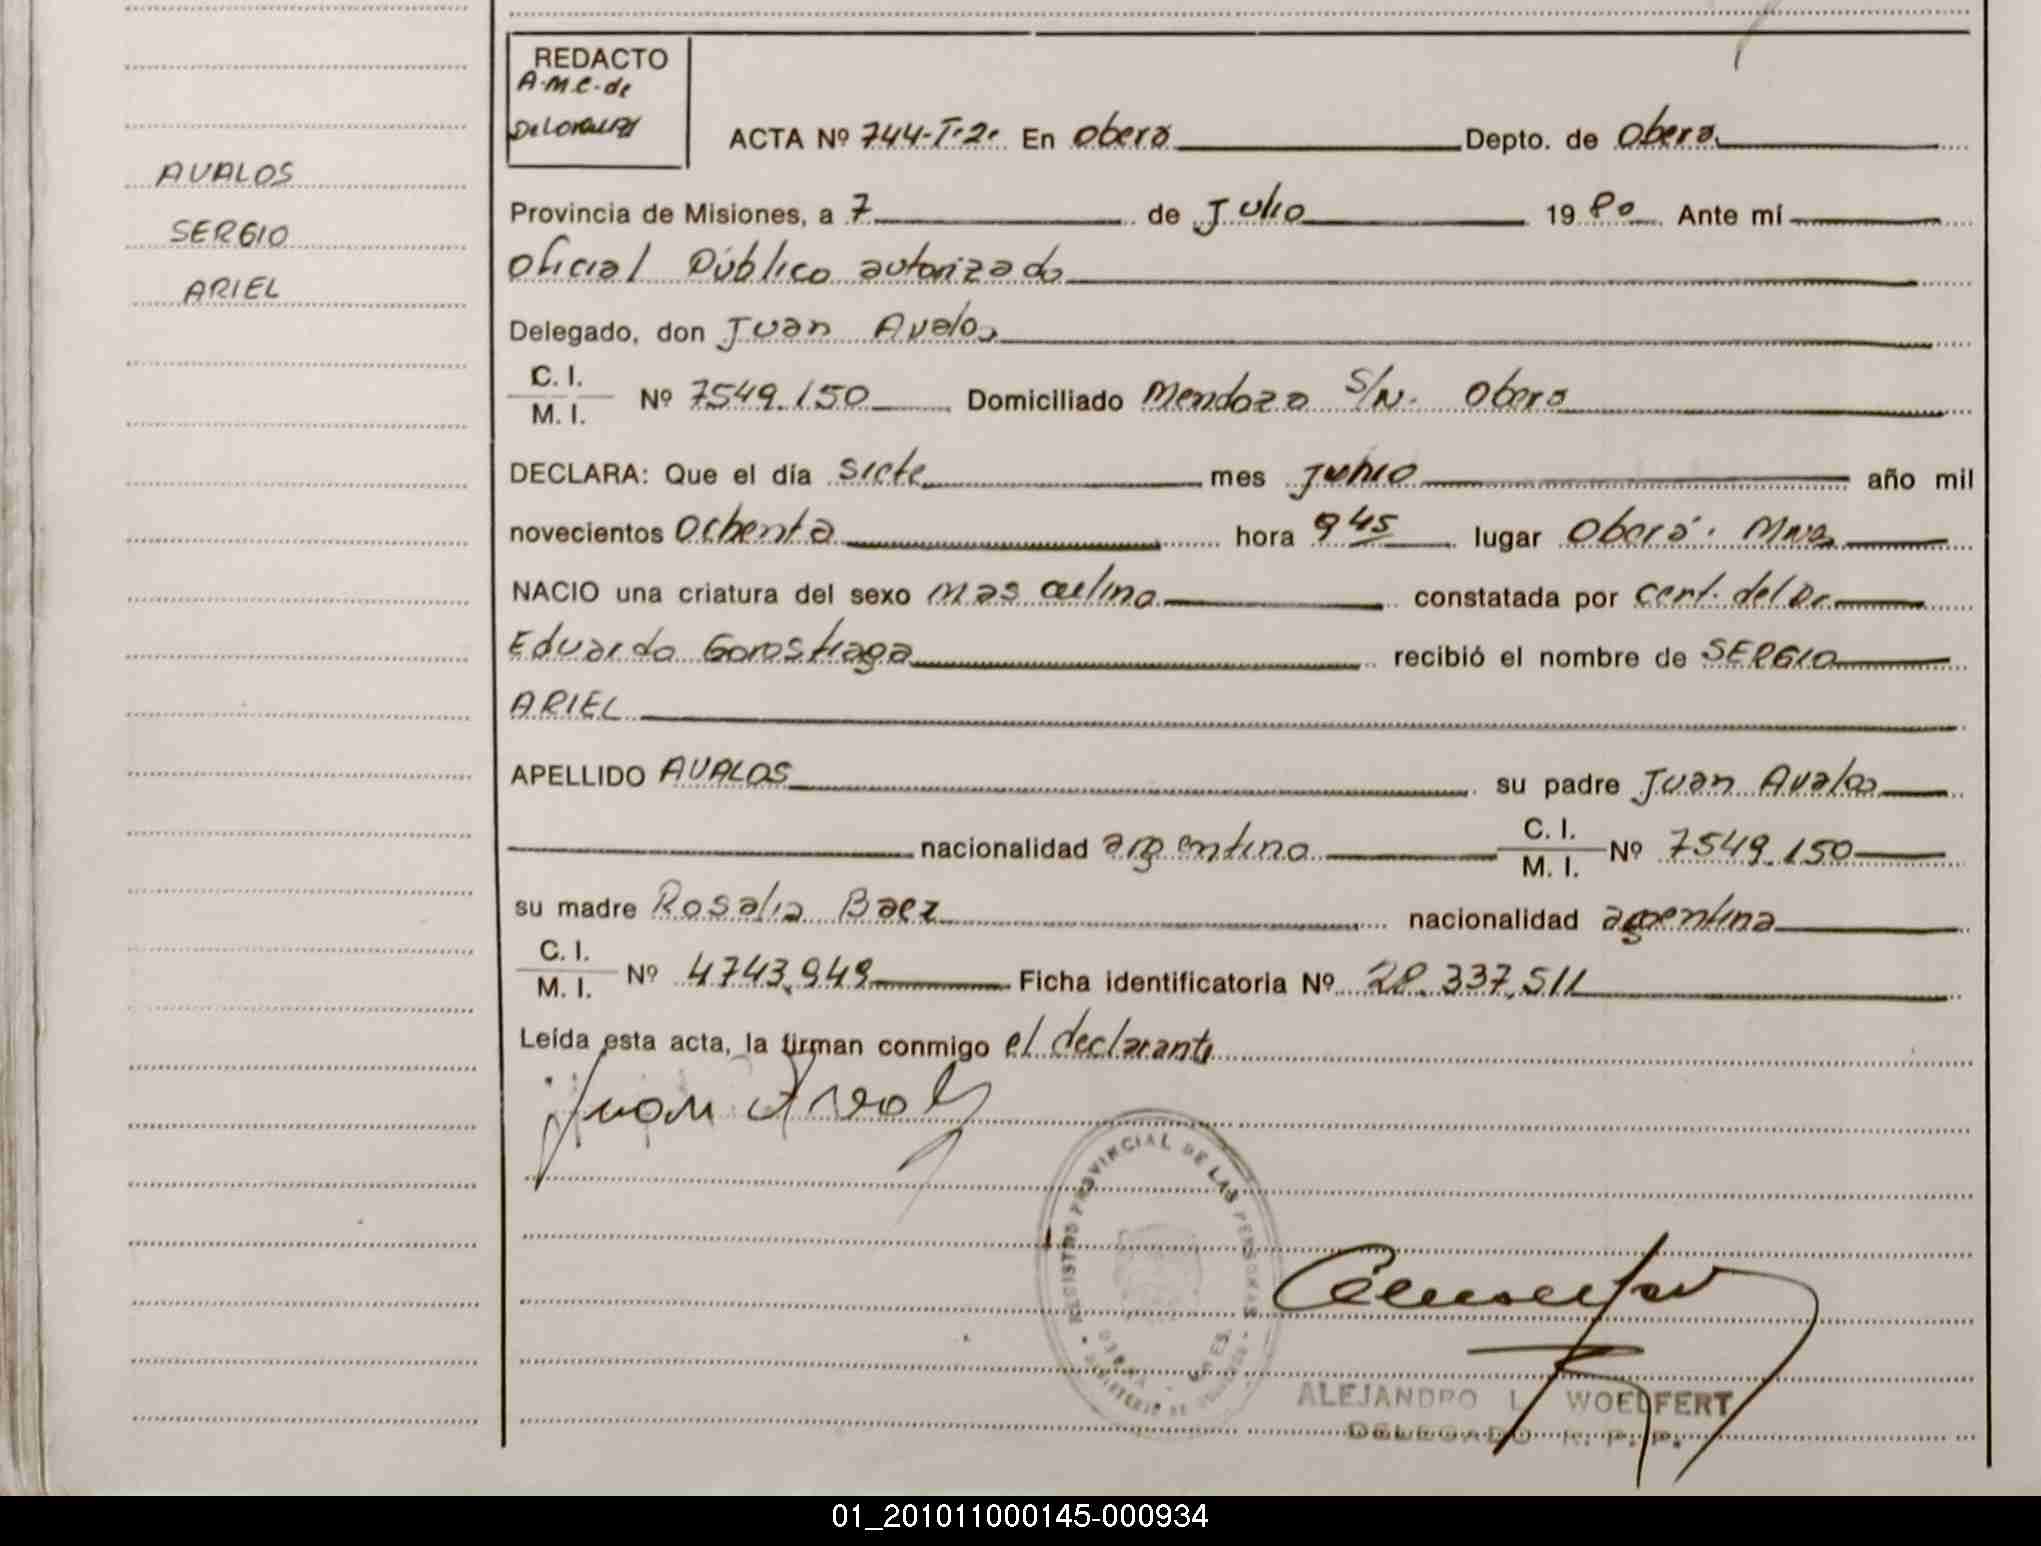 REDACTO
A.M.C. de
ACTA Nº 744-T.2º En Oberá Depto. de Oberá
AVALOS
SERGIO
ARIEL
Provincia de Misiones, a 7 de Julio 1980 Ante mí
Oficial Público autorizado
Delegado, don Juan Avalos
C. I.
M. I. Nº 7549.150 Domiciliado Mendoza S/N. Oberá
DECLARA: Que el día siete mes junio año mil
novecientos Ochenta hora 9 45 lugar Oberá. Mnes
NACIO una criatura del sexo masculino constatada por cert. del Dr.
Eduardo Gorostiaga recibió el nombre de SERGIO
ARIEL
APELLIDO AVALOS su padre Juan Avalos
nacionalidad argentina C. I.
M. I. Nº 7549.150
su madre Rosalia Baez nacionalidad argentina
C. I.
M. I. Nº 4743.949 Ficha identificatoria Nº 28.337.511
Leída esta acta, la firman conmigo el declarante
Juan Avalos
REGISTRO PROVINCIAL DE LAS PERSONAS
OBERA - MNES.
MINISTERIO DE GOBIERNO
ALEJANDRO L. WOELFERT
DELEGADO R. P. P.
01_201011000145-000934